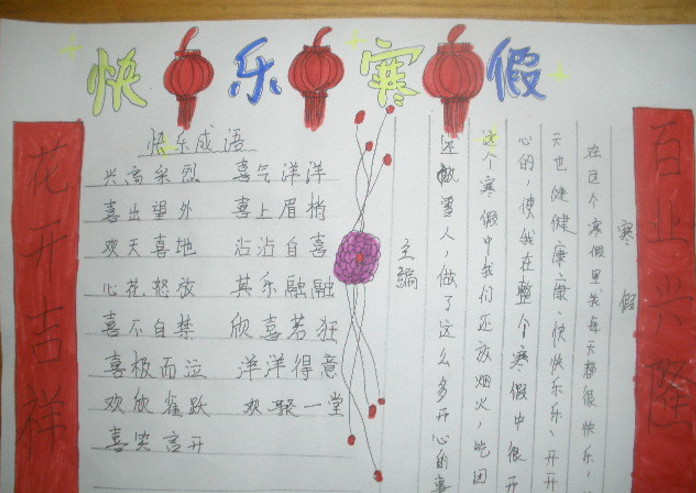 快乐寒假
花开吉祥
快乐成语
兴高采烈 喜气洋洋
喜出望外 喜上眉梢
欢天喜地 沾沾自喜
心花怒放 其乐融融
喜不自禁 欣喜若狂
喜极而泣 洋洋得意
欢欣雀跃 欢聚一堂
喜笑言开
百业兴隆
寒假
在这个寒假里我每天都很快乐，
天也健健康康、快快乐乐、开开
心的，使我在整个寒假中很开
这个寒假中我们还放烟火，吃团
还雪人，做了这么多开心的事
主编